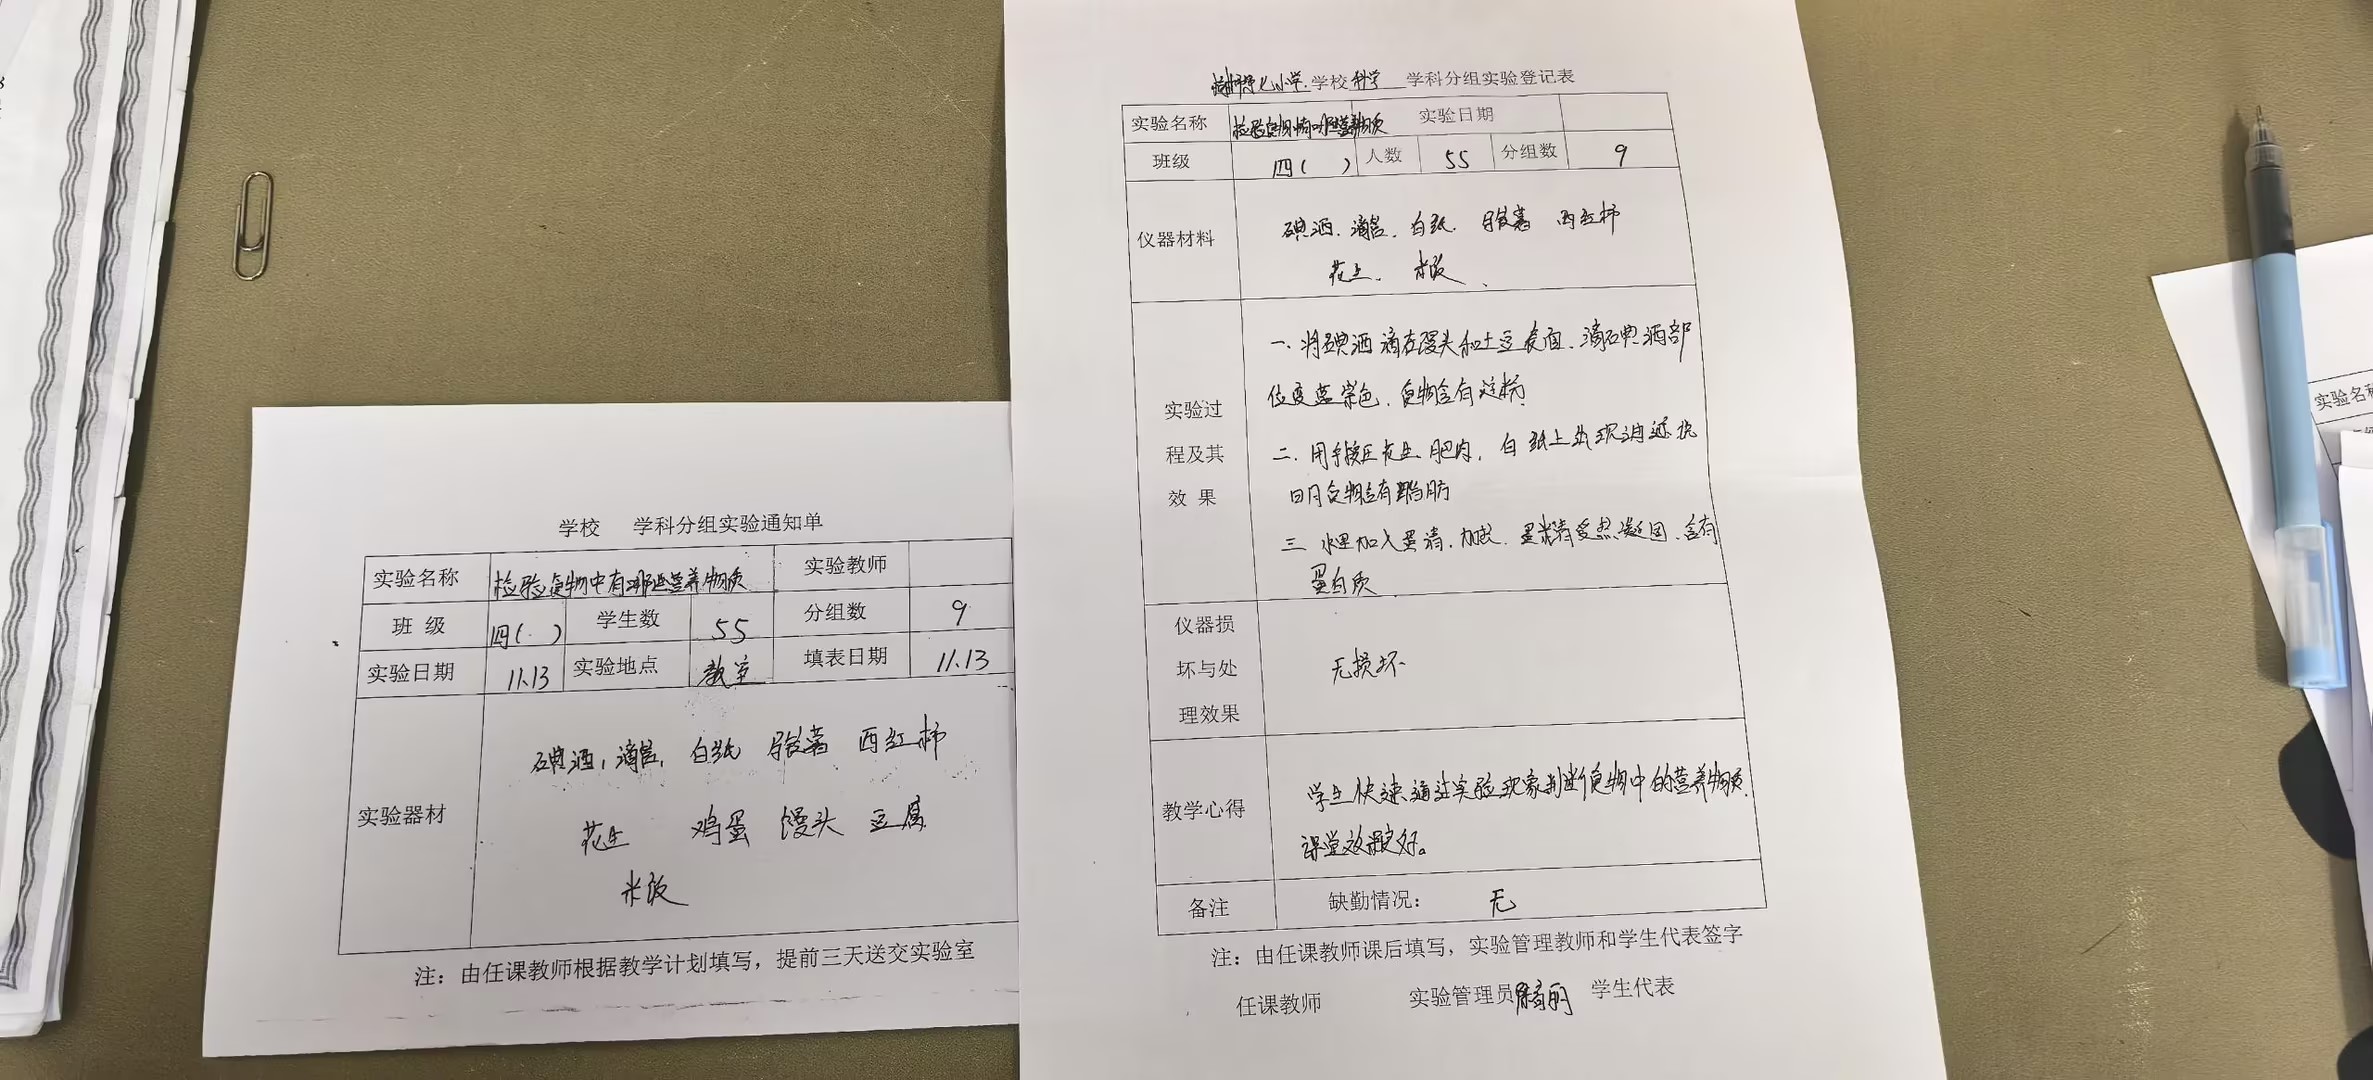 学校 学科分组实验通知单
实验名称 检验食物中有哪些营养物质 实验教师
班 级 四( ) 学生数 55 分组数 9
实验日期 11.13 实验地点 教室 填表日期 11.13
实验器材
碘酒,滴管,白纸 马铃薯 西红柿
花生 鸡蛋 馒头 豆腐
米饭
注:由任课教师根据教学计划填写,提前三天送交实验室
小学.学校 科学 学科分组实验登记表
实验名称 检验食物中有哪些营养物质 实验日期
班级 四( ) 人数 55 分组数 9
仪器材料
碘酒.滴管.白纸.马铃薯 西红柿
花生.米饭、
实验过
程及其
效 果
一.将碘酒滴在馒头和土豆表面.滴碘酒部
位变蓝紫色.食物含有淀粉
二.用手按压花生.肥肉,白纸上出现油迹.说
明食物含有脂肪
三 水里加入蛋清.加热.蛋清受热凝固.含有
蛋白质
仪器损
坏与处
理效果
无损坏
教学心得
学生快速通过实验现象判断食物中的营养物质.
课堂效果良好。
备注 缺勤情况: 无
注:由任课教师课后填写,实验管理教师和学生代表签字
任课教师 实验管理员 学生代表
实验名称